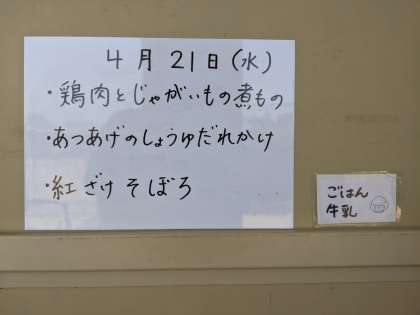 4月21日(水)
・鶏肉とじゃがいもの煮もの
・あつあげのしょうゆだれかけ
・紅ざけそぼろ
ごはん
牛乳